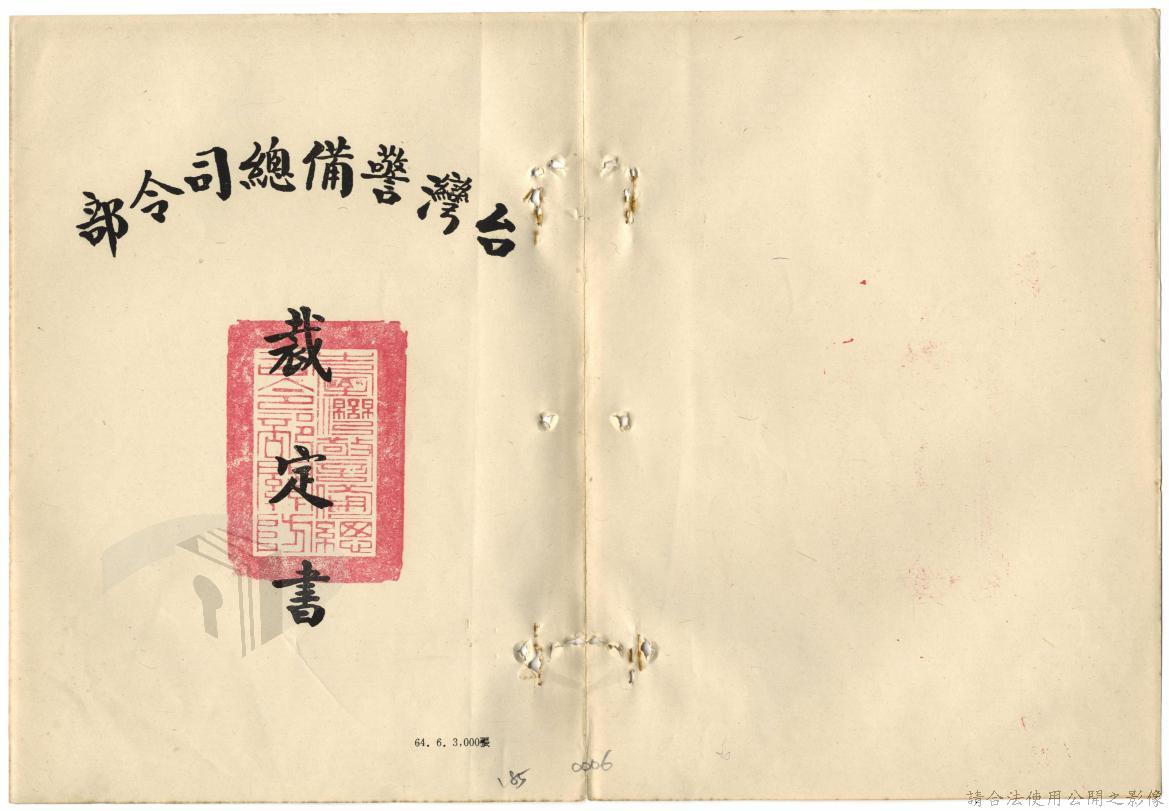 台灣警備總司令部
裁定書
64. 6. 3,000張
185
0006
請合法使用公開之影像